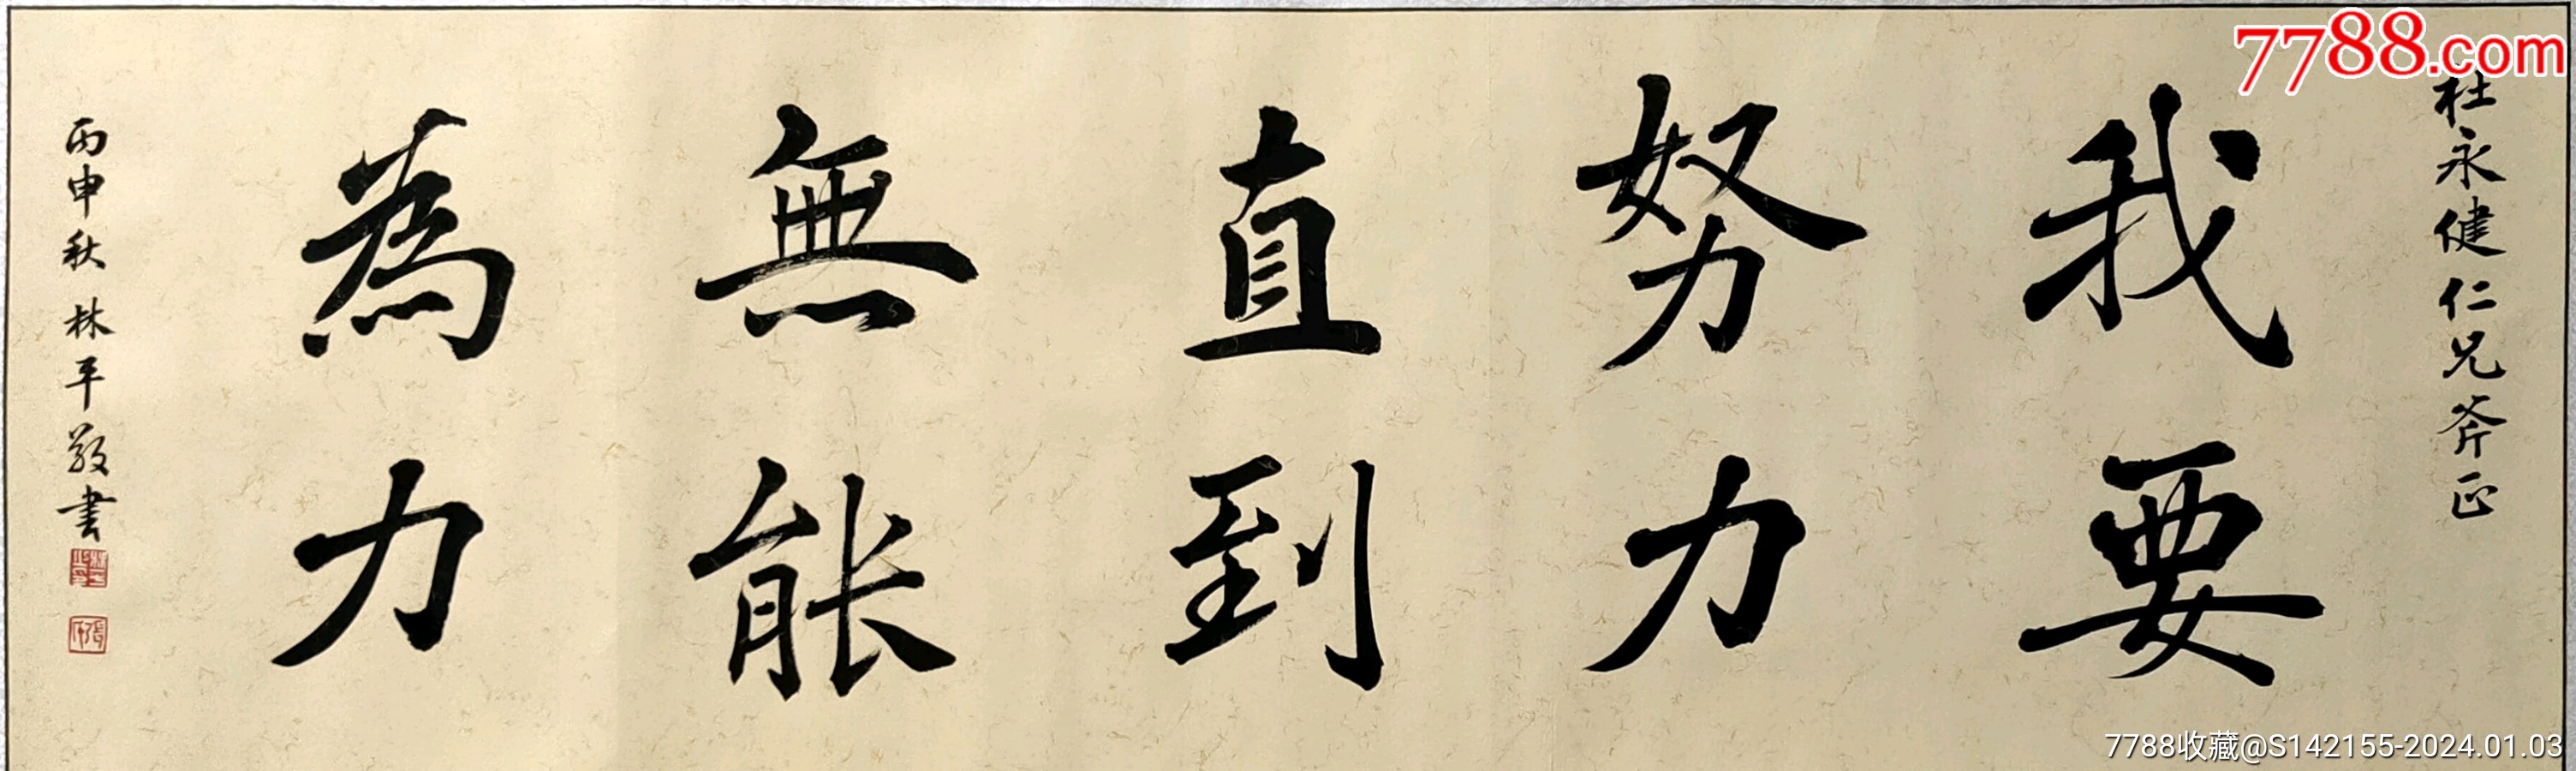 7788.com
杜永健仁兄斧正
我要
努力
直到
無能
為力
丙申秋林平敬書
7788收藏@S142155-2024.01.03